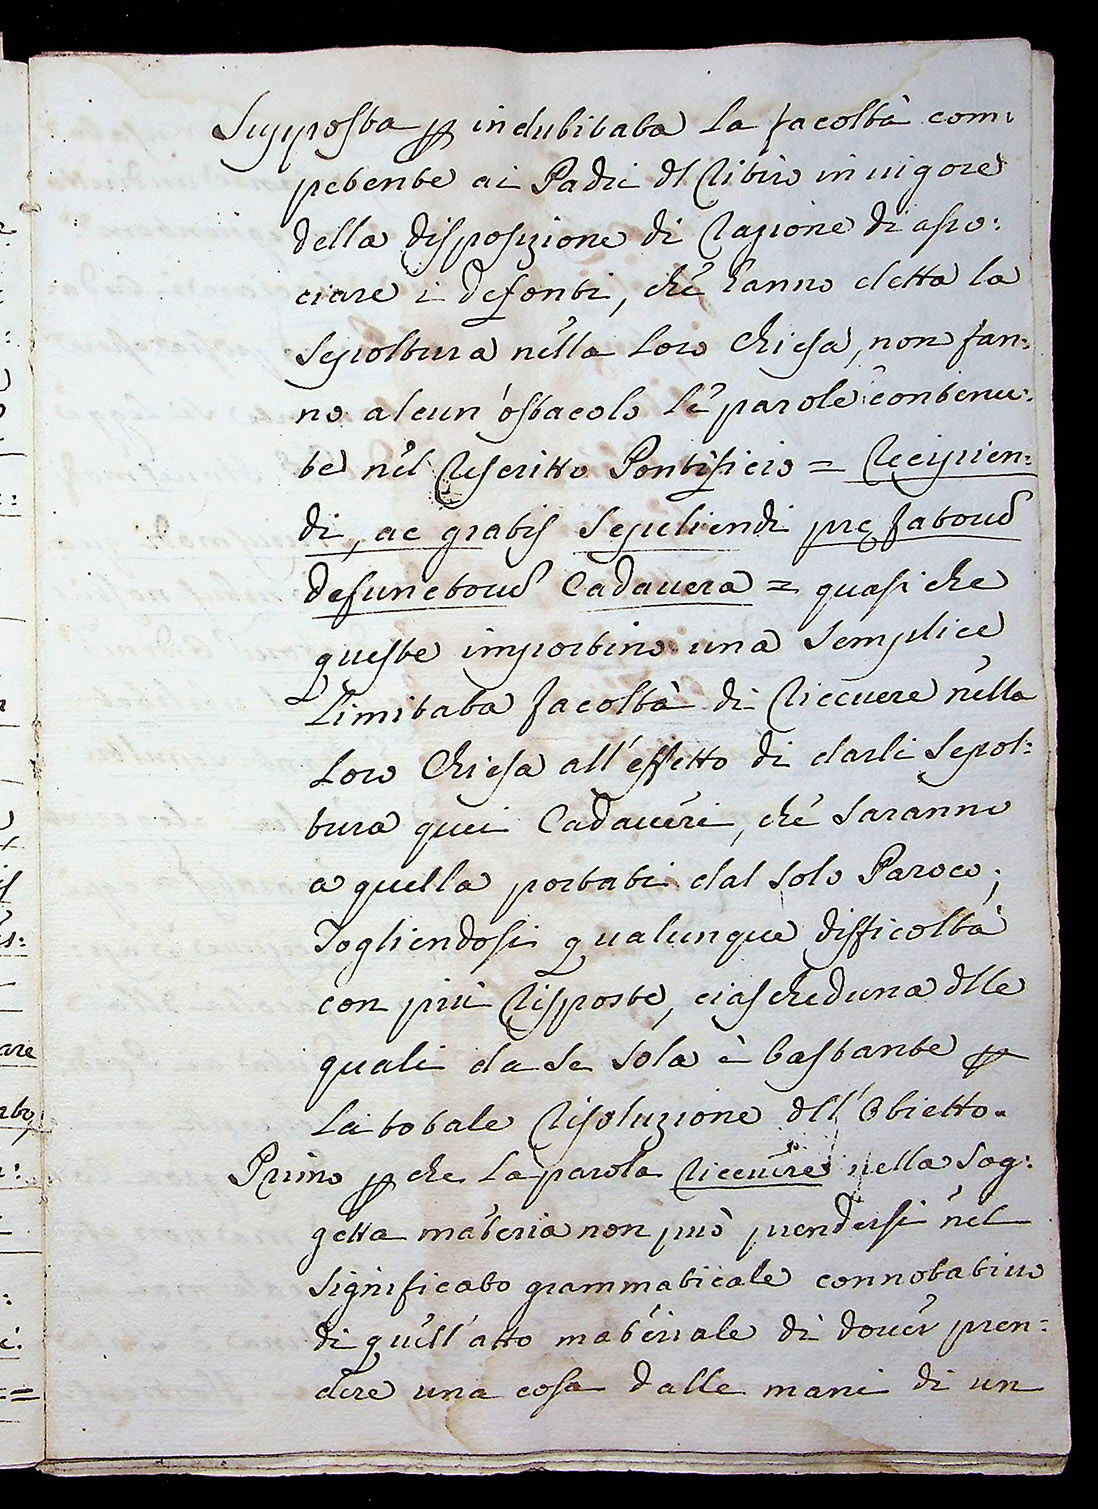 Supposta ꝑ indubitata la facoltà com:
petente ai Padri dl Ritiro in vigore
della disposizione di Ragione di asso:
ciare i defonti, che hanno eletta la
sepoltura nella loro Chiesa, non fan:
no alcun'ostacolo le parole contenu:
te nel Rescritto Pontificio = Recipien:
di, ac gratis sepeliendi prę fatorud
defunctorud Cadavera = quasi che
queste importino una semplice
limitata facoltà di ricevere nella
loro Chiesa all'effetto di darli sepol:
tura quei Cadaveri, che saranno
a quella portati dal solo Paroco;
Togliendosi qualunque difficoltà
con più risposte, ciascheduna dlle
quali da se sola è bastante ꝑ
la totale risoluzione dll'Obietto.
Primo ꝑ che la parola ricevere nella sog:
getta materia non può prendersi nel
significato grammaticale connotativo
di quell'atto materiale di dover pren:
dere una cosa dalle mani di un